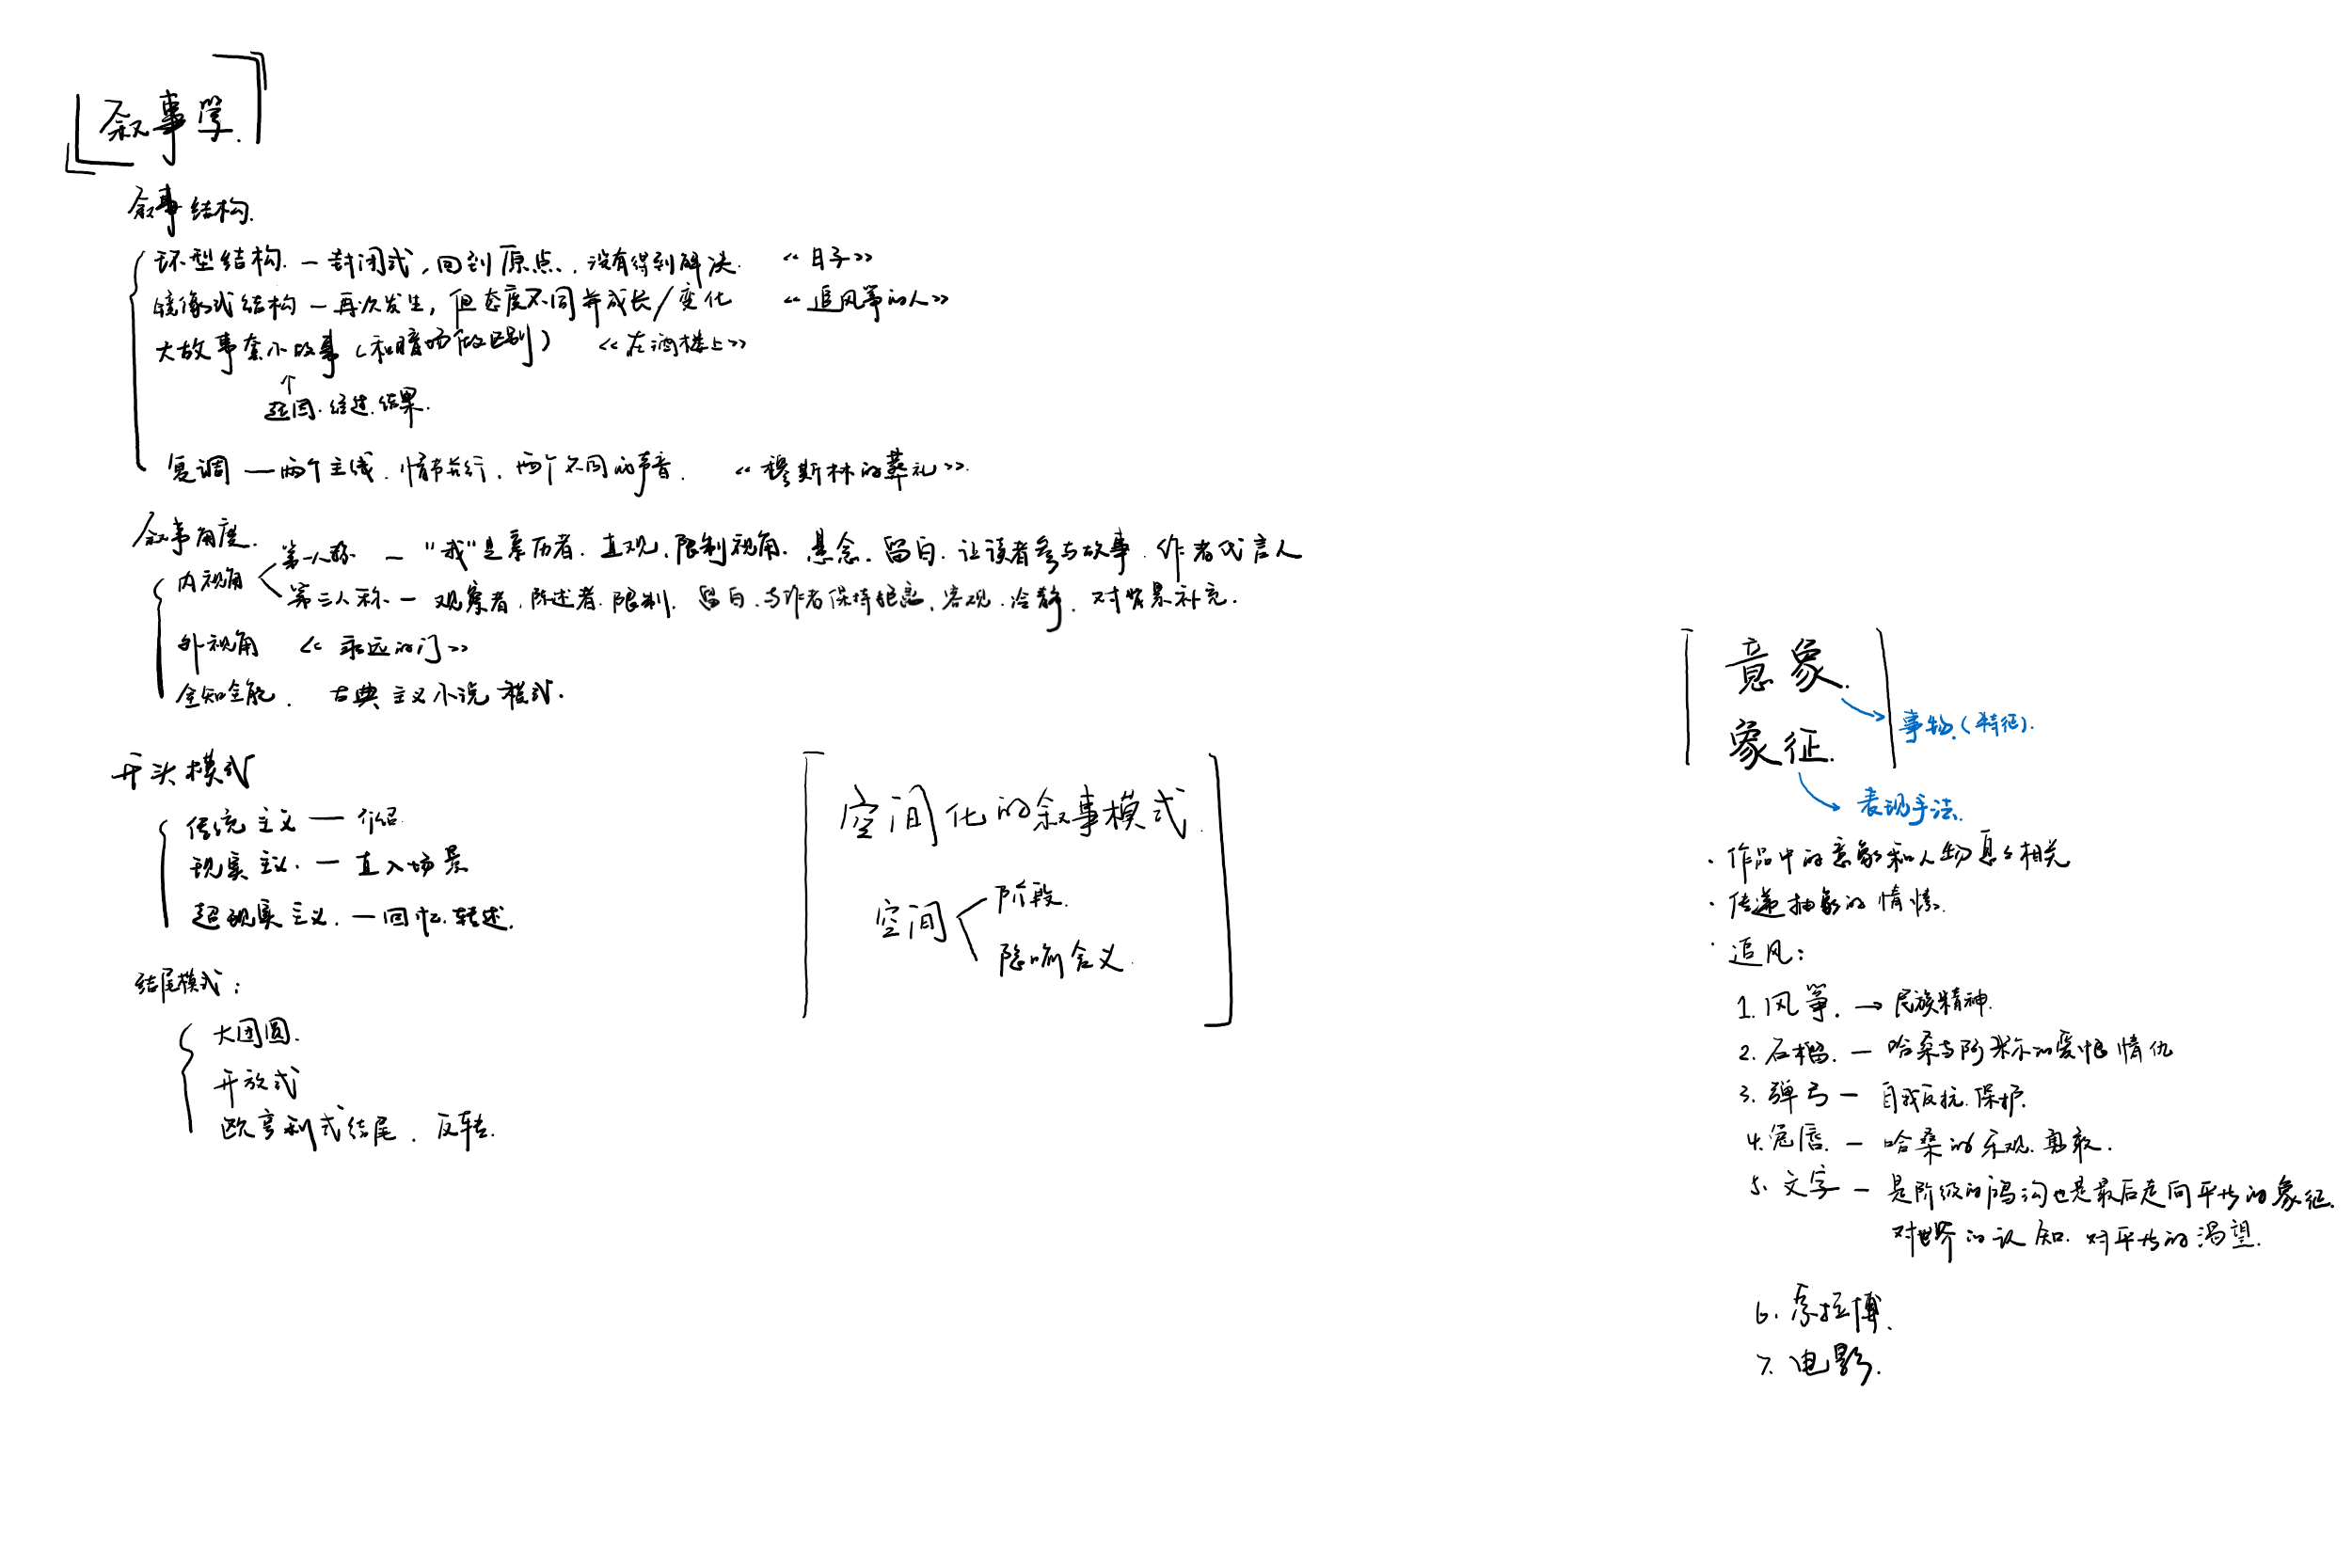 叙事学.
叙事结构.
环型结构. — 封闭式, 回到原点, 没有得到解决. 《日子》
镜像式结构 — 再次发生, 但态度不同并成长/变化 《追风筝的人》
大故事套小故事 (和暗场做区别) 《在酒楼上》
↑
起因. 经过. 结果.
复调 — 两个主线. 情节并行, 两个不同的声音. 《穆斯林的葬礼》.
叙事角度.
内视角
第一人称 — "我"是亲历者. 直观, 限制视角. 悬念. 留白. 让读者参与故事. 作者代言人
第三人称 — 观察者. 陈述者. 限制. 留白. 与作者保持距离. 客观. 冷静. 对背景补充.
外视角 《永远的门》
全知全能. 古典主义小说模式.
开头模式
传统主义 — 介绍.
现实主义. — 直入场景
超现实主义. — 回忆. 转述.
结尾模式:
大团圆.
开放式
欧亨利式结尾. 反转.
空间化的叙事模式.
空间
阶段.
隐喻含义.
意象.
→ 事物. (特征).
象征.
→ 表现手法.
· 作品中的意象和人物息息相关
· 传递抽象的情愫.
· 追风:
1. 风筝. → 民族精神.
2. 石榴. — 哈桑与阿米尔的爱恨情仇
3. 弹弓 — 自我反抗. 保护.
4. 兔唇. — 哈桑的乐观. 勇敢.
5. 文字 — 是阶级的鸿沟也是最后走向平等的象征.
对世界的认知. 对平等的渴望.
6. 索拉博.
7. 电影.